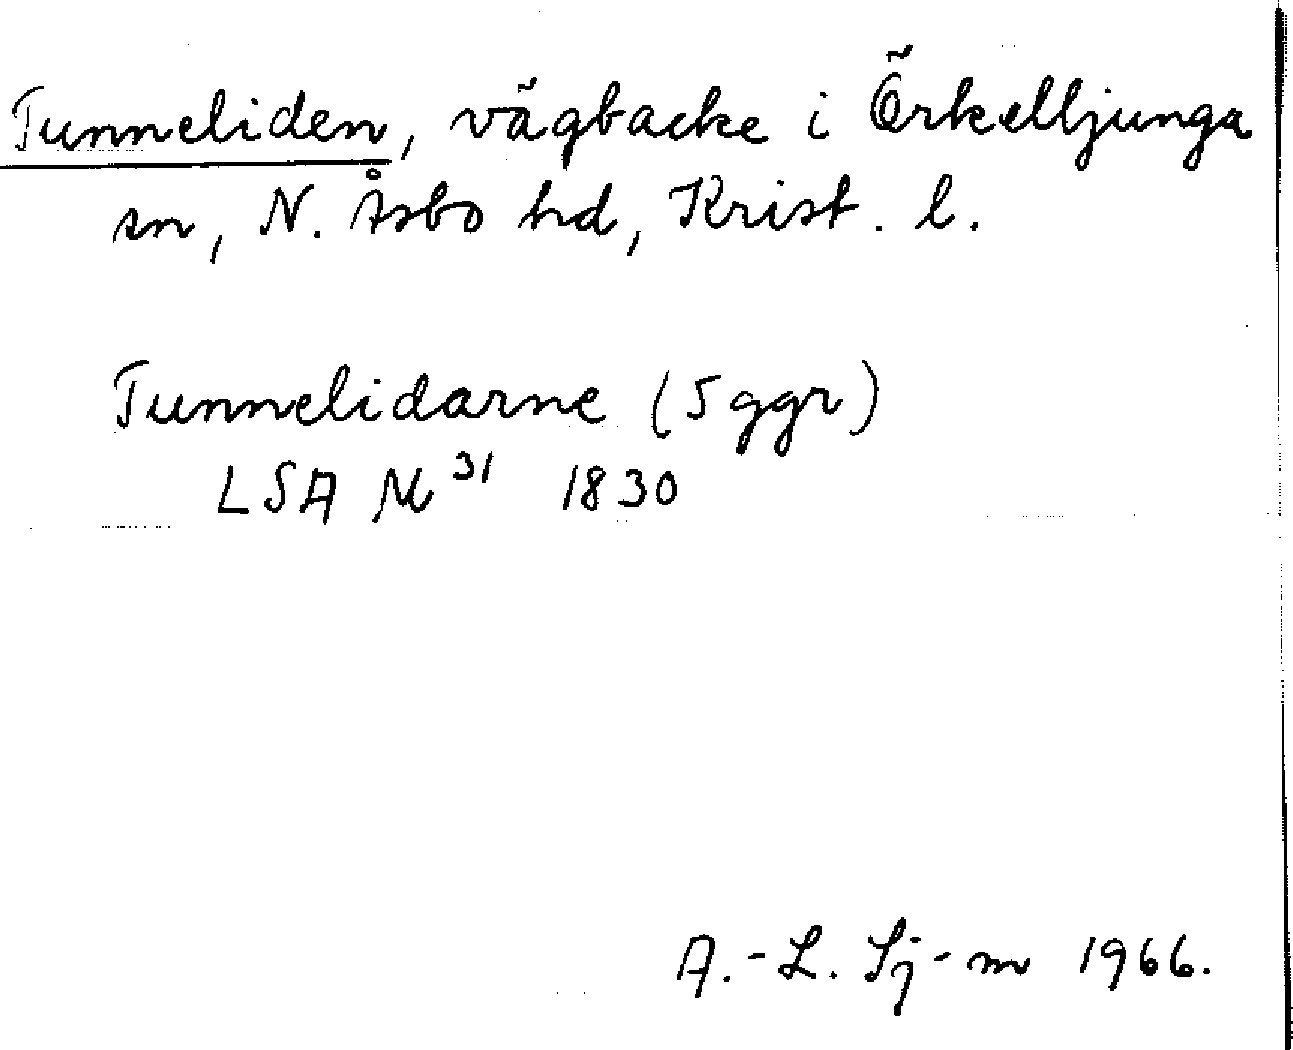 Tunneliden, vägbacke i Örkelljunga
sn, N. Åsbo hd, Krist. l.
Tunnelidarne (5 ggr)
LSA N 31 1830
A.-L. Sj-m 1966.